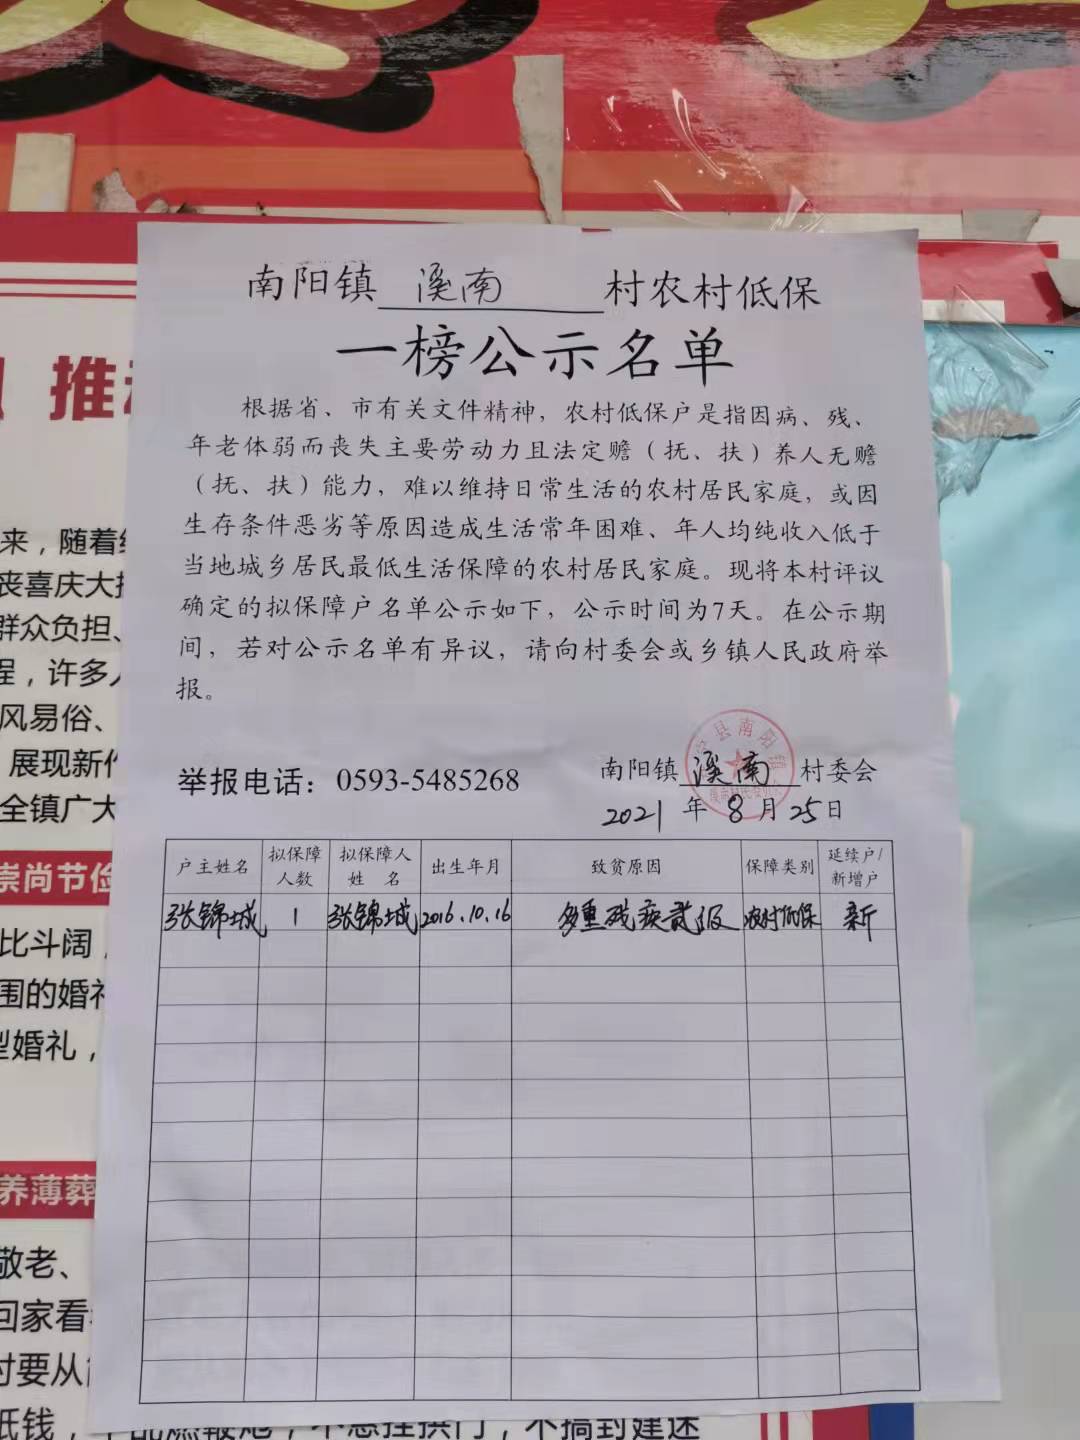 推
南阳镇 溪南 村农村低保
一榜公示名单
根据省、市有关文件精神，农村低保户是指因病、残、
年老体弱而丧失主要劳动力且法定赡（抚、扶）养人无赡
（抚、扶）能力，难以维持日常生活的农村居民家庭，或因
生存条件恶劣等原因造成生活常年困难、年人均纯收入低于
当地城乡居民最低生活保障的农村居民家庭。现将本村评议
确定的拟保障户名单公示如下，公示时间为7天。在公示期
间，若对公示名单有异议，请向村委会或乡镇人民政府举
报。
举报电话：0593-5485268
南阳镇 溪南 村委会
2021 年 8 月 25 日
户主姓名 拟保障人数 拟保障人姓名 出生年月 致贫原因 保障类别 延续户/新增户
张锦城 1 张锦城 2016.10.16 多重残疾贰级 农村低保 新
来，随着
丧喜庆大
群众负担、
程，许多
风易俗、
展现新
全镇广大
崇尚节俭
比斗阔，
围的婚礼
型婚礼，
养薄葬
敬老、
回家看
村要从
纸钱，
不搞封建迷